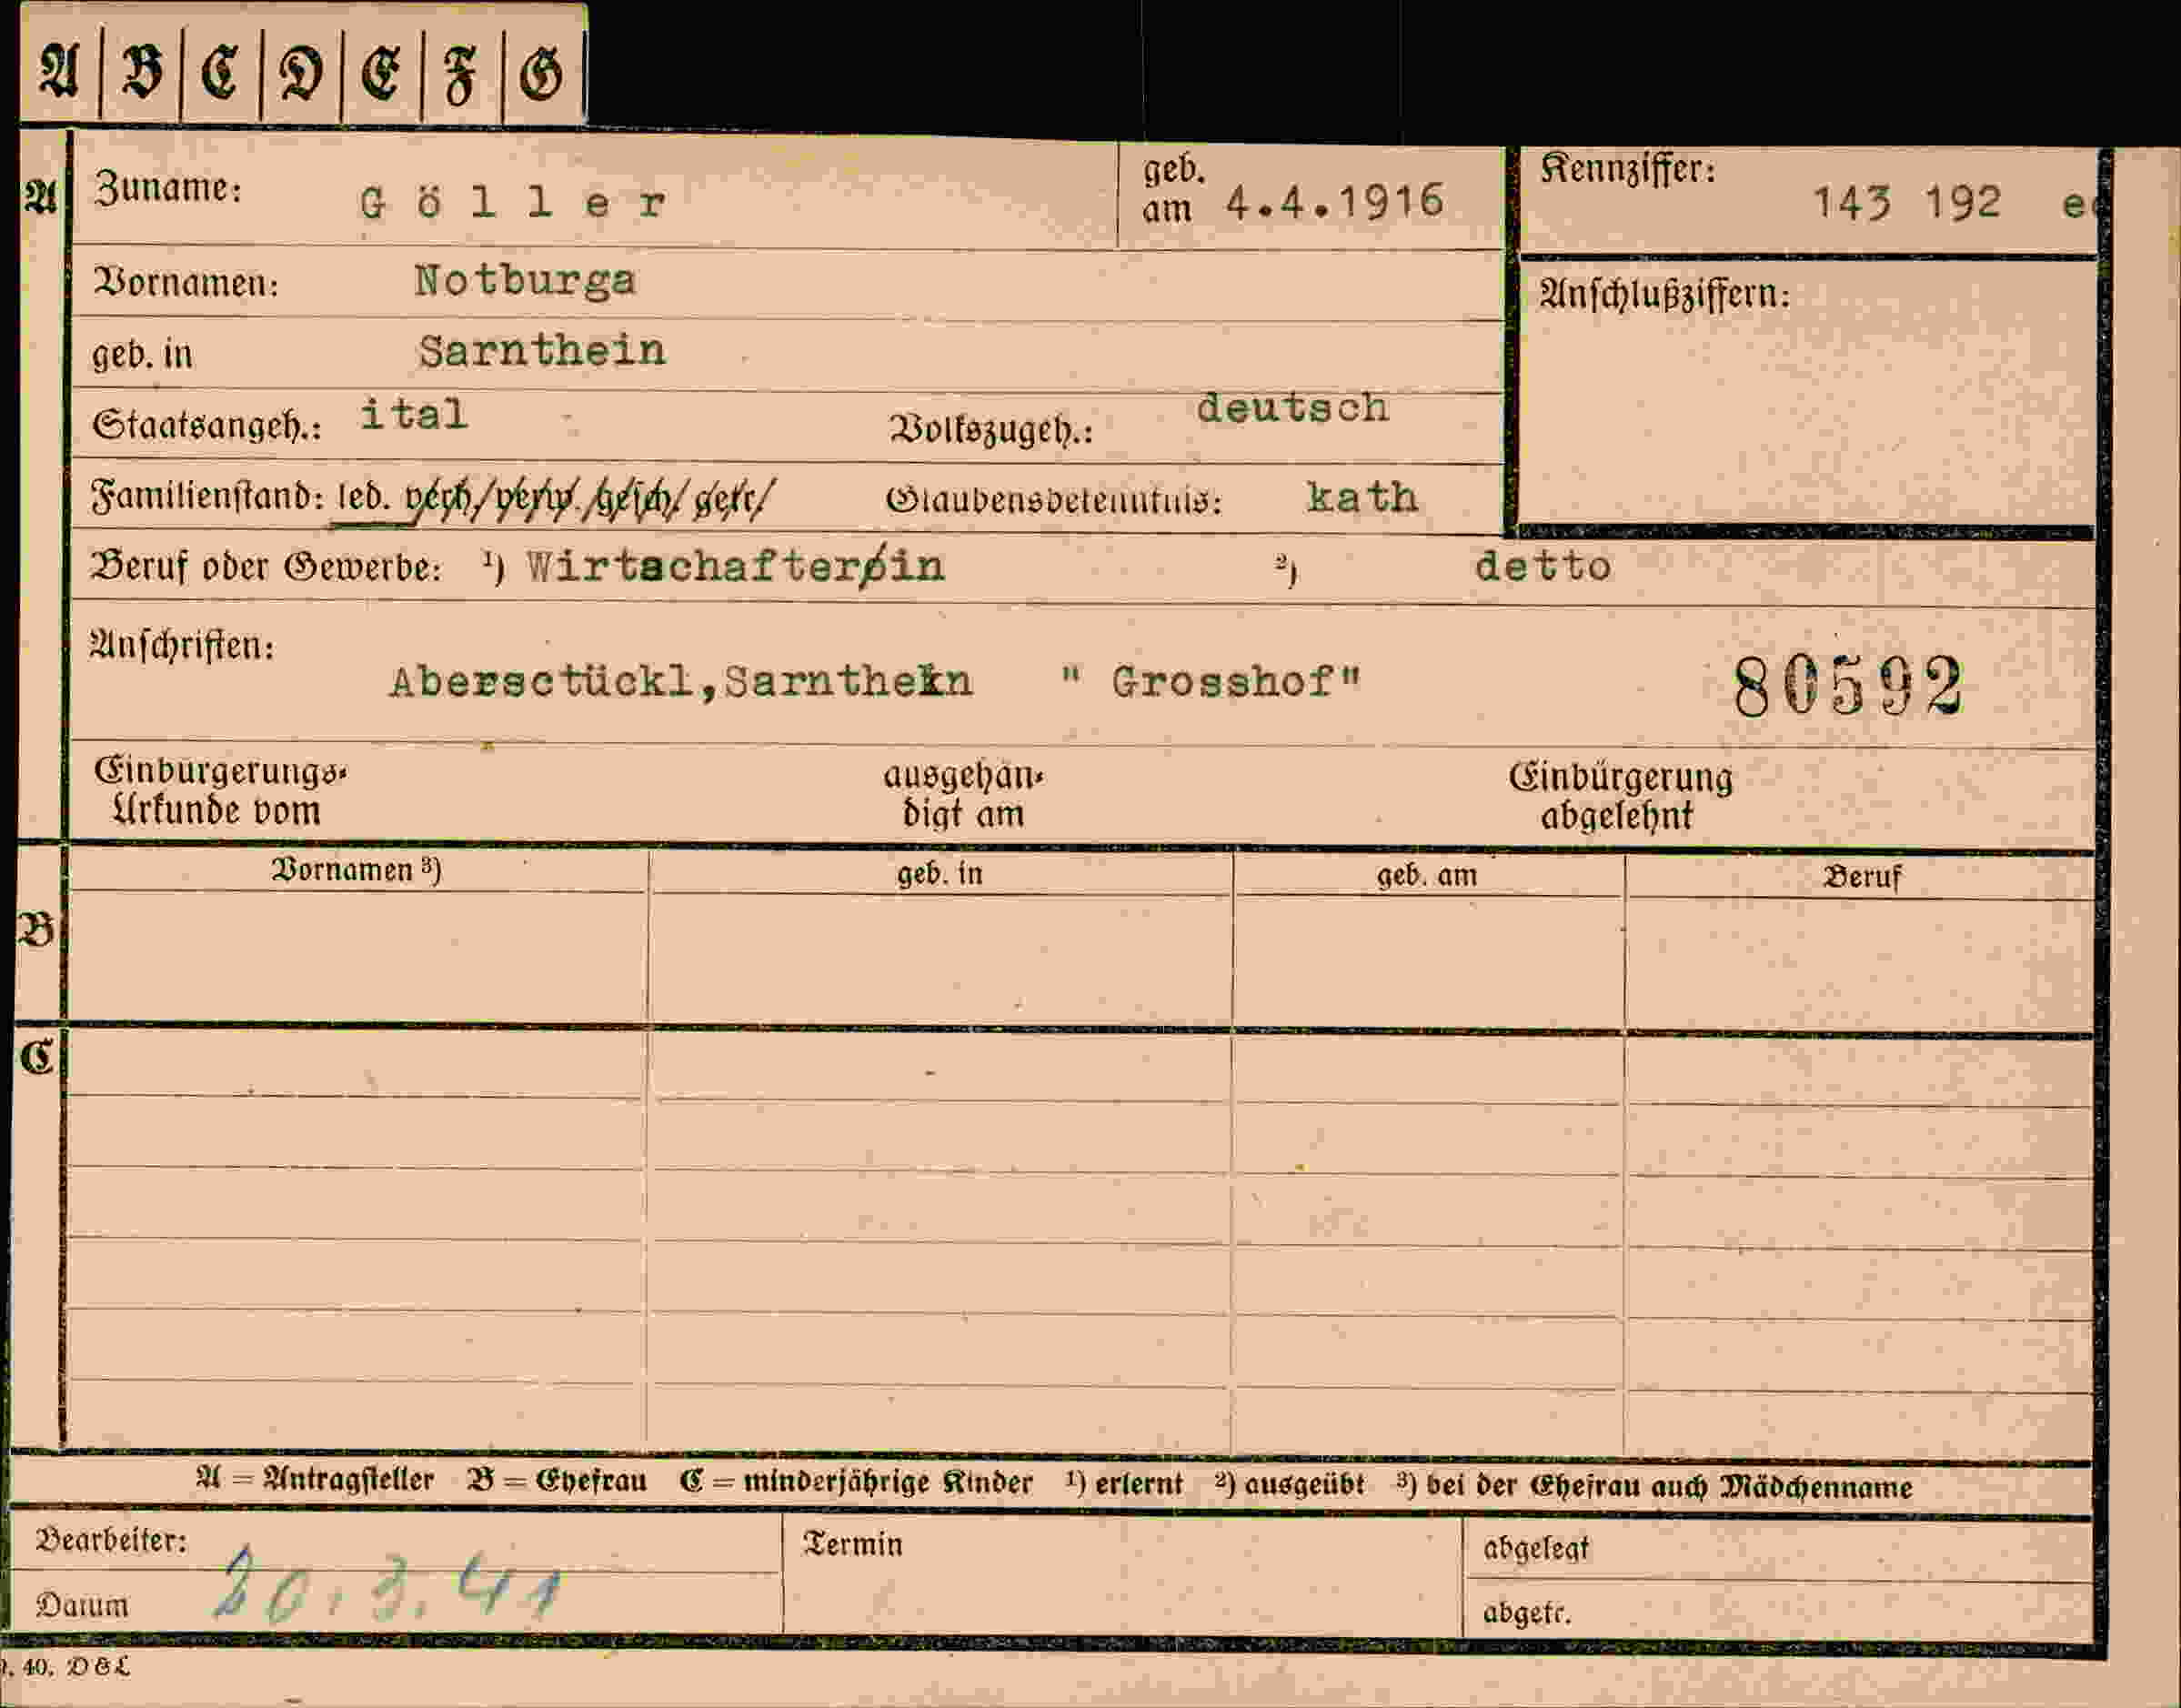 A | B | C | D | E | F | G
A Zuname: Göller geb. am 4.4.1916 Kennziffer: 143 192
Vornamen: Notburga Anschlußziffern:
geb. in Sarnthein
Staatsangeh.: ital Volkszugeh.: deutsch
Familienstand: led. verh/verw./gesch/getr/ Glaubensbekenntnis: kath
Beruf oder Gewerbe: ¹) Wirtschafterin ²) detto
Anschriften:
Abersctückl,Sarnthein " Grosshof" 80592
Einbürgerungs- ausgehän- Einbürgerung
Urkunde vom digt am abgelehnt
Vornamen ³) geb. in geb. am Beruf
B
C
A = Antragsteller B = Ehefrau C = minderjährige Kinder ¹) erlernt ²) ausgeübt ³) bei der Ehefrau auch Mädchenname
Bearbeiter: Termin abgelegt
Datum 20.3.41 abgetr.
40. D&L